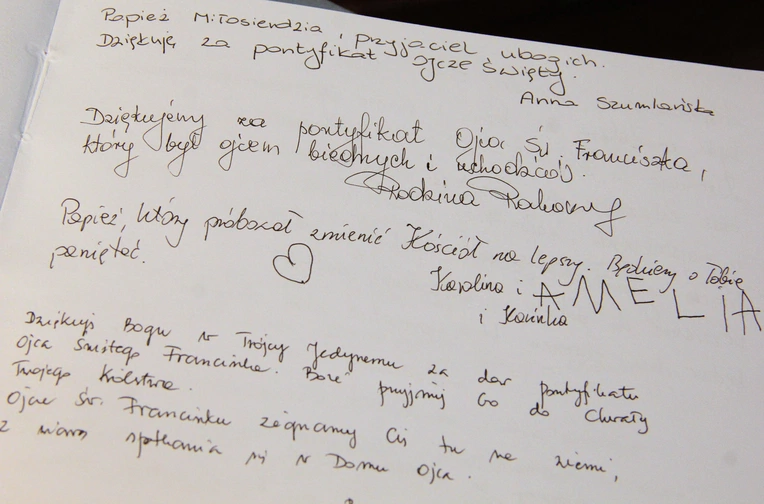 Papież Miłosierdzia, przyjaciel ubogich.
Dziękuję za pontyfikat Ojcze Święty.
Anna Szumlańska
Dziękujemy za pontyfikat Ojca Św. Franciszka,
który był ojcem biednych i uchodźców.
Rodzina
Papież, który próbował zmienić Kościół na lepszy. Będziemy o Tobie
pamiętać.
Karolina i AMELIA
i Karinka
Dziękuję Bogu w Trójcy Jedynemu za dar pontyfikatu
Ojca Świętego Franciszka. Boże przyjmij Go do Chwały
Twojego Królestwa.
Ojcze Św. Franciszku żegnamy Cię tu na ziemi,
z wiarą spotkania się w Domu Ojca.